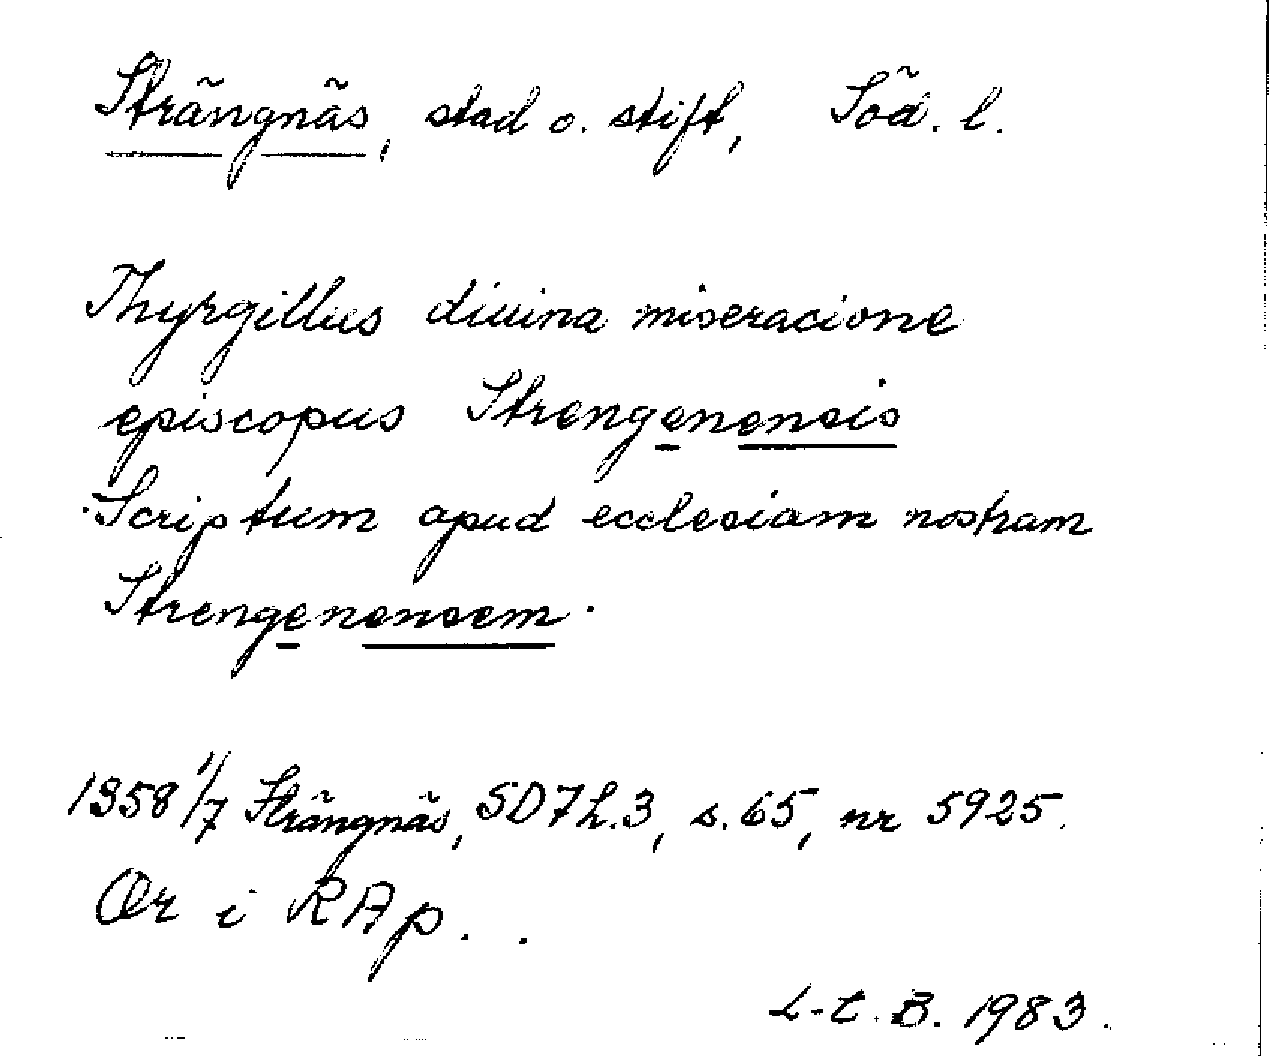 Strängnäs, stad o. stift, Söd. l.
Thyrgillus diuina miseracione
episcopus Strengenensis
Scriptum apud ecclesiam nostram
Strengenensem.
1358 1/7 Strängnäs, SD 7 h. 3, s. 65, nr 5925.
Or i RAp.
L-E. B. 1983.